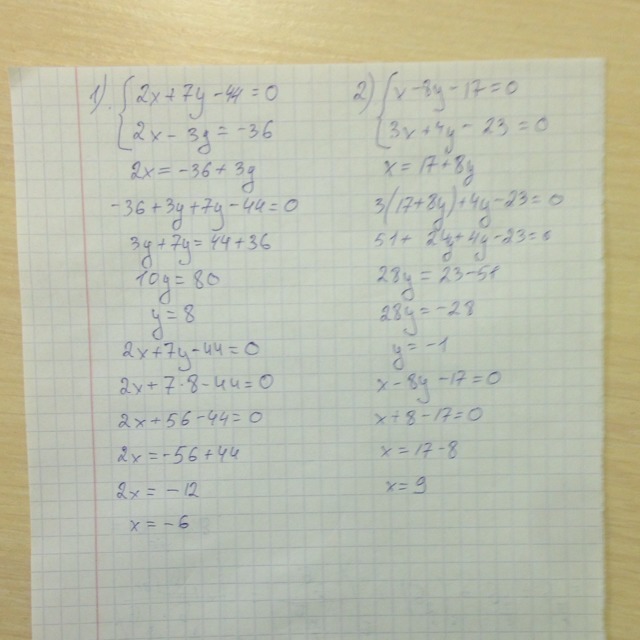 1) {2x + 7y - 44 = 0
{2x - 3y = -36
2x = -36 + 3y
-36 + 3y + 7y - 44 = 0
3y + 7y = 44 + 36
10y = 80
y = 8
2x + 7y - 44 = 0
2x + 7·8 - 44 = 0
2x + 56 - 44 = 0
2x = -56 + 44
2x = -12
x = -6
2) {x - 8y - 17 = 0
{3x + 4y - 23 = 0
x = 17 + 8y
3(17 + 8y) + 4y - 23 = 0
51 + 24y + 4y - 23 = 0
28y = 23 - 51
28y = -28
y = -1
x - 8y - 17 = 0
x + 8 - 17 = 0
x = 17 - 8
x = 9